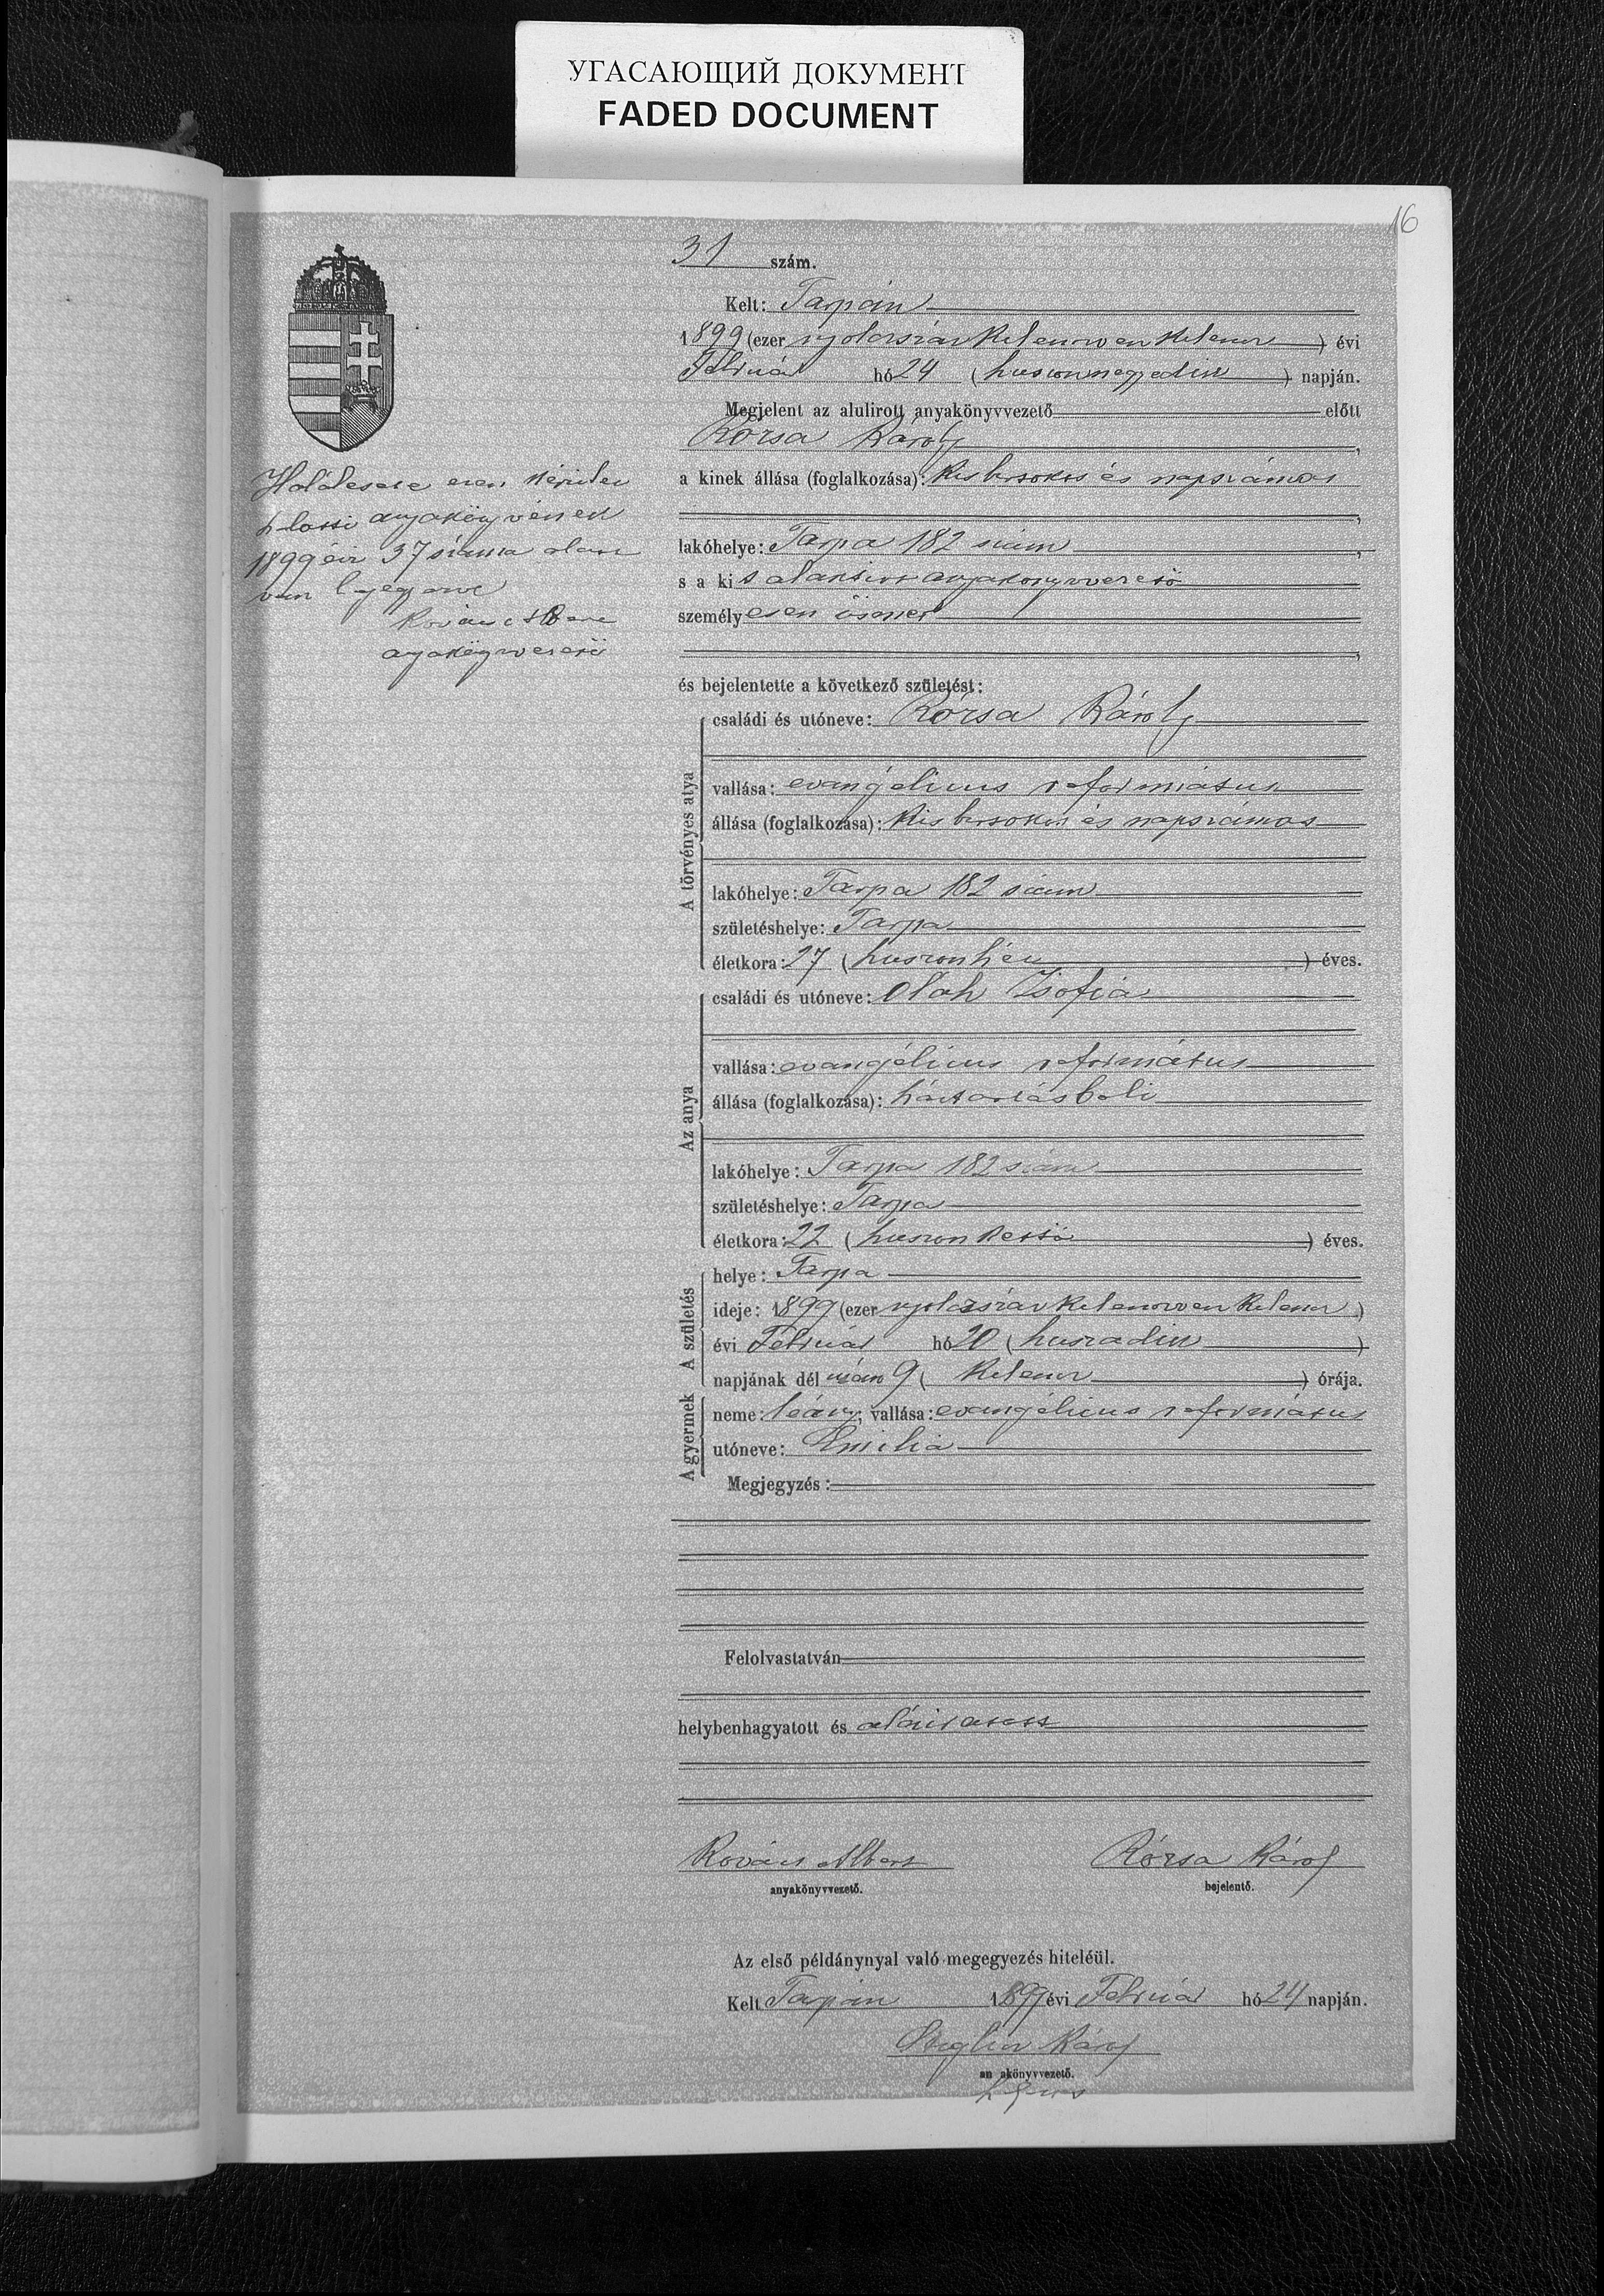 УГАСАЮЩИЙ ДОКУМЕНТ
FADED DOCUMENT
16
31 szám.
Kelt: Tarpán
1899 (ezer nyolczszáz kilenczven kilencz) évi
Február hó 24 (huszonnegyedik) napján.
Megjelent az alulirott anyakönyvvezető előtt
Rózsa Károly,
a kinek állása (foglalkozása): kis birtokos és napszámos
,
lakóhelye: Tarpa 182 szám,
s a kit alantirt anyakönyvvezető
személyesen ismer
,
és bejelentette a következő születést:
A törvényes atya
családi és utóneve: Rózsa Károly
vallása: evangélicus református
állása (foglalkozása): kis birtokos és napszámos
lakóhelye: Tarpa 182 szám
születéshelye: Tarpa
életkora: 27 (huszonhét) éves.
Az anya
családi és utóneve: Oláh Zsófia
vallása: evangélicus református
állása (foglalkozása): háztartásbeli
lakóhelye: Tarpa 182 szám
születéshelye: Tarpa
életkora: 22 (huszonkettő) éves.
A születés
helye: Tarpa
ideje: 1899 (ezer nyolczszáz kilenczven kilencz)
évi Február hó 20 (huszadik)
napjának dél után 9 (kilencz) órája.
A gyermek
neme: leány; vallása: evangélicus református
utóneve: Emilia
Megjegyzés:
Felolvastatván
helybenhagyatott és aláiratott
Kovács Albert Rózsa Károly
anyakönyvvezető. bejelentő.
Az első példánynyal való megegyezés hiteléül.
Kelt Tarpán 1899 évi Február hó 24 napján.
Károly
anyakönyvvezető.
Halálesete ezen kerület
halotti anyakönyvének
1899 évi 37 száma alatt
van bejegyezve
Kovács Albert
anyakönyvvezető